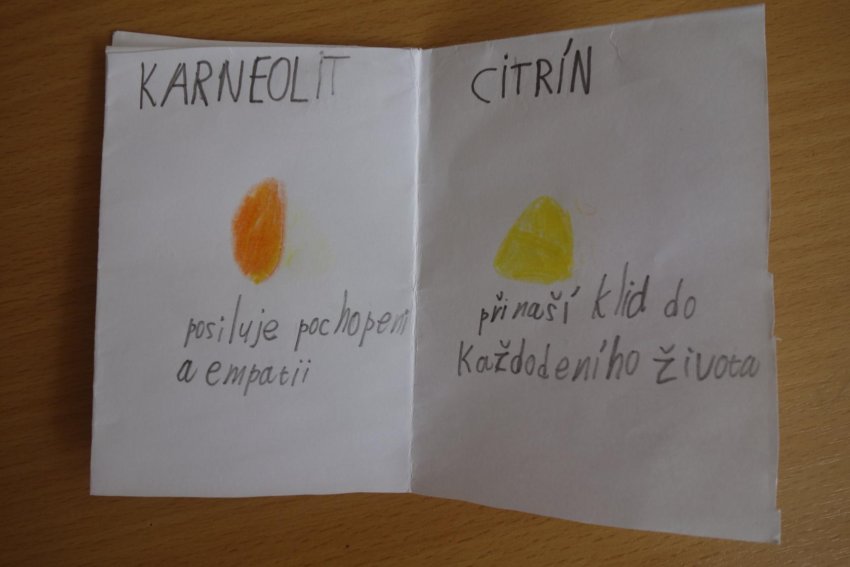 KARNEOLIT
posiluje pochopeni
a empatii
CiTRÍN
přinaší klid do
každodeního života